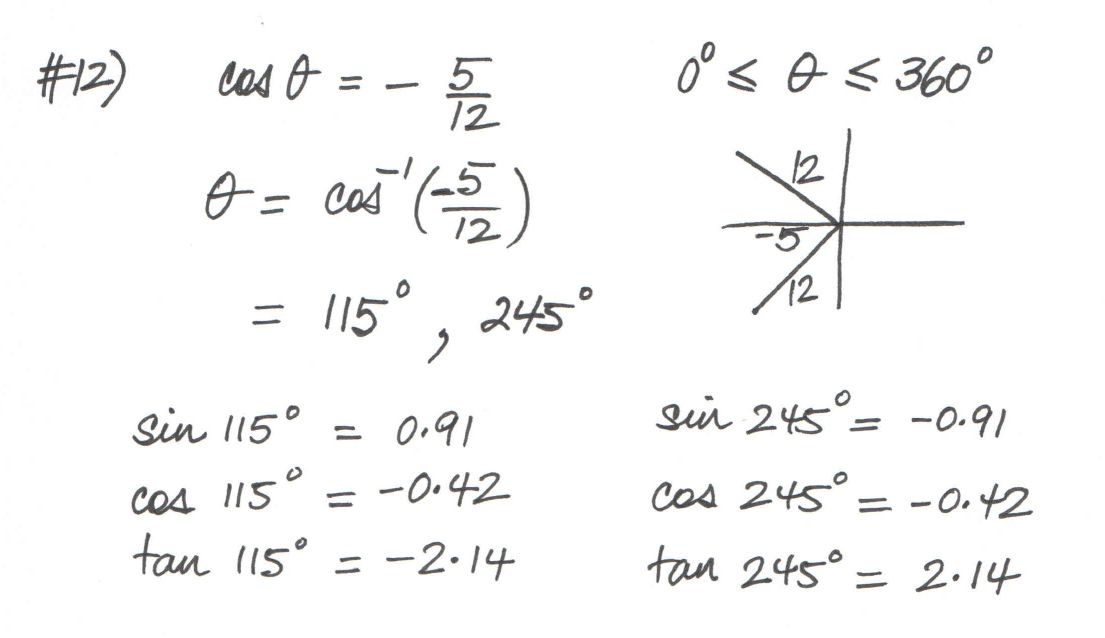 #12) cos θ = - 5/12 0° ≤ θ ≤ 360°
θ = cos⁻¹(-5/12)
= 115°, 245°
12
-5
12
sin 115° = 0.91
cos 115° = -0.42
tan 115° = -2.14
sin 245° = -0.91
cos 245° = -0.42
tan 245° = 2.14